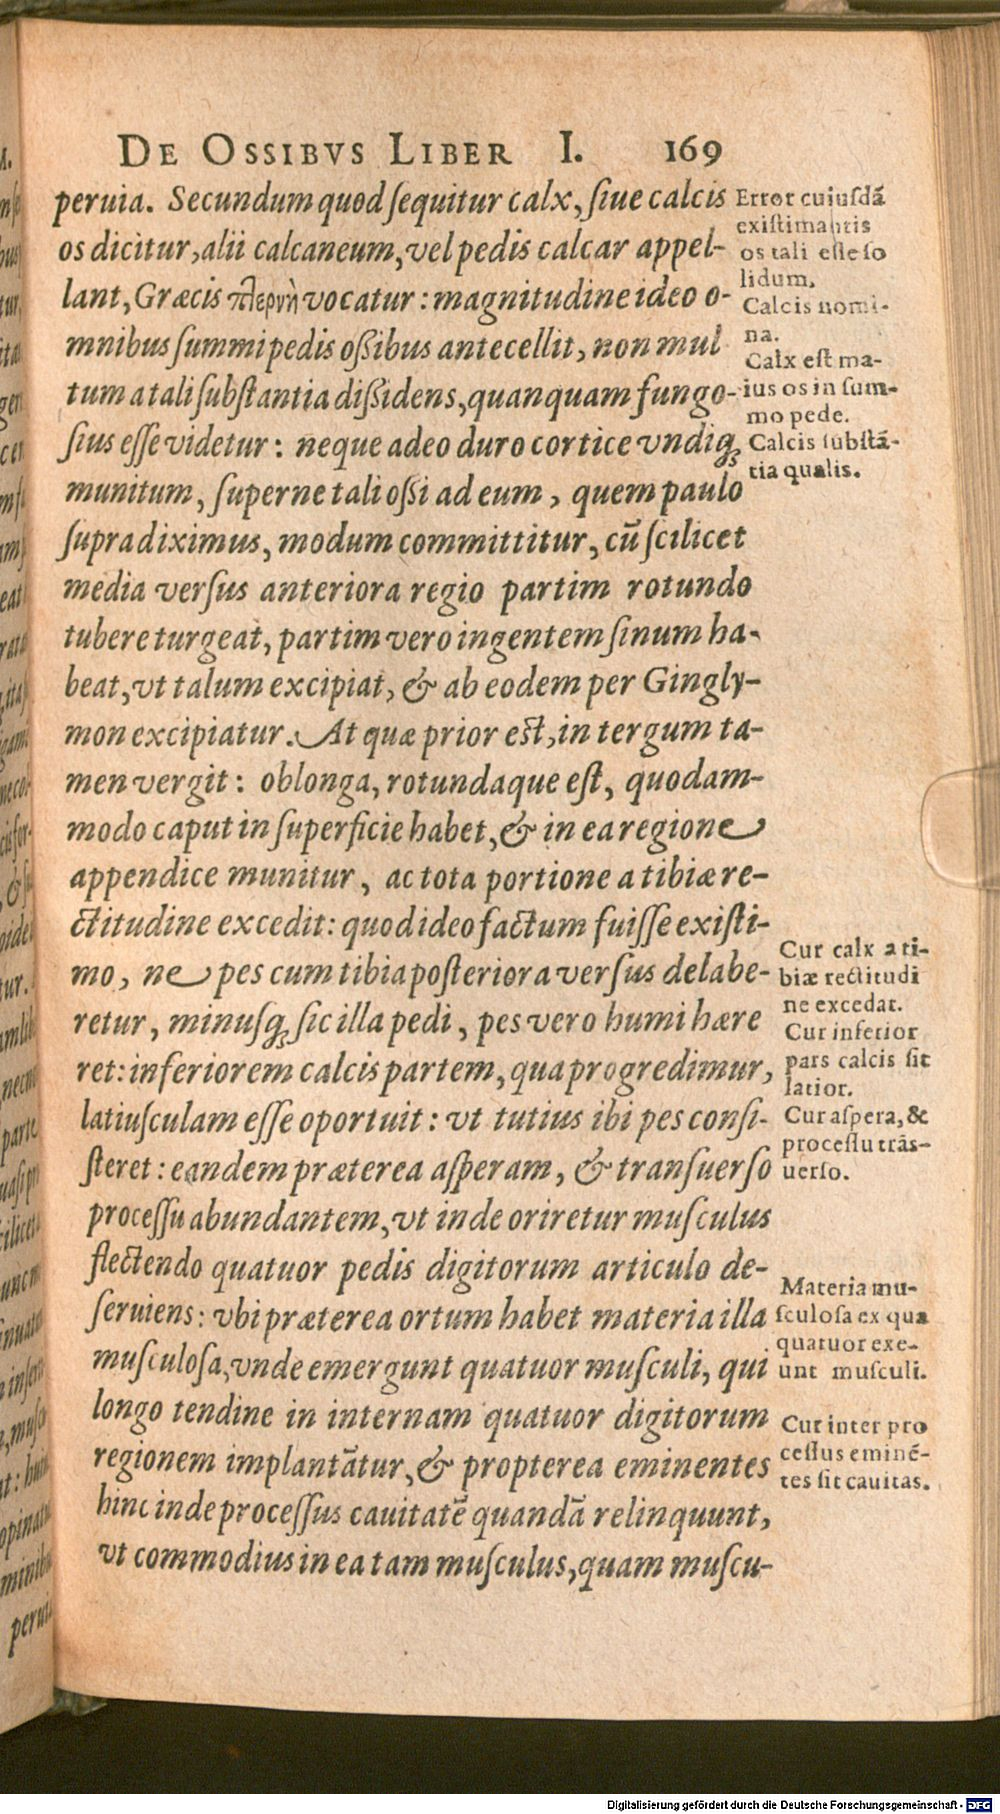 DE OSSIBVS LIBER I. 169
peruia. Secundum quod ſequitur calx, ſiue calcis
os dicitur, alii calcaneum, vel pedis calcar appel-
lant, Græcis πτερνὴ vocatur: magnitudine ideo o-
mnibus ſummi pedis oßibus antecellit, non mul
tum a tali ſubſtantia dißidens, quanquam fungo-
ſius eſſe videtur: neque adeo duro cortice vndiq́ꝫ
munitum, ſuperne tali oßi ad eum, quem paulo
ſupra diximus, modum committitur, cũ ſcilicet
media verſus anteriora regio partim rotundo
tubere turgeat, partim vero ingentem ſinum ha-
beat, vt talum excipiat, & ab eodem per Gingly-
mon excipiatur. At quæ prior eſt, in tergum ta-
men vergit: oblonga, rotundaque eſt, quodam-
modo caput in ſuperficie habet, & in ea regione
appendice munitur, ac tota portione a tibiæ re-
ctitudine excedit: quod ideo factum fuiſſe exiſti-
mo, ne pes cum tibia poſteriora verſus delabe-
retur, minuſq́ꝫ ſic illa pedi, pes vero humi hære
ret: inferiorem calcis partem, qua progredimur,
latiuſculam eſſe oportuit: vt tutius ibi pes conſi-
ſteret: eandem præterea aſperam, & tranſuerſo
proceſſu abundantem, vt inde oriretur muſculus
flectendo quatuor pedis digitorum articulo de-
ſeruiens: vbi præterea ortum habet materia illa
muſculoſa, vnde emergunt quatuor muſculi, qui
longo tendine in internam quatuor digitorum
regionem implantãtur, & propterea eminentes
hinc inde proceſſus cauitatẽ quandã relinquunt,
vt commodius in ea tam muſculus, quam muſcu-
Error cuiuſdã
exiſtimantis
os tali eſſe ſo
lidum.
Calcis nomi-
na.
Calx eſt ma-
ius os in ſum-
mo pede.
Calcis ſubſtã-
tia qualis.
Cur calx a ti-
biæ rectitudi
ne excedat.
Cur inferior
pars calcis ſit
latior.
Cur aſpera, &
proceſſu trãſ-
uerſo.
Materia mu-
ſculoſa ex qua
quatuor exe-
unt muſculi.
Cur inter pro
ceſſus eminẽ-
tes ſit cauitas.
Digitalisierung gefördert durch die Deutsche Forschungsgemeinschaft - DFG